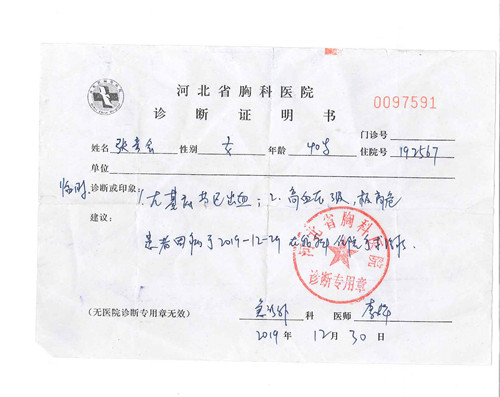 河北省胸科医院
诊断证明书
0097591
门诊号
姓名 张 性别 女 年龄 40岁 住院号 192567
单位
诊断或印象: 1. 左基底节区出血;2. 高血压3级,极高危
建议:
患者因病于2019-12-29在我科住院手术治疗.
河北省胸科医院
诊断专用章
(无医院诊断专用章无效) 外 科 医师 李
2019 年 12 月 30 日